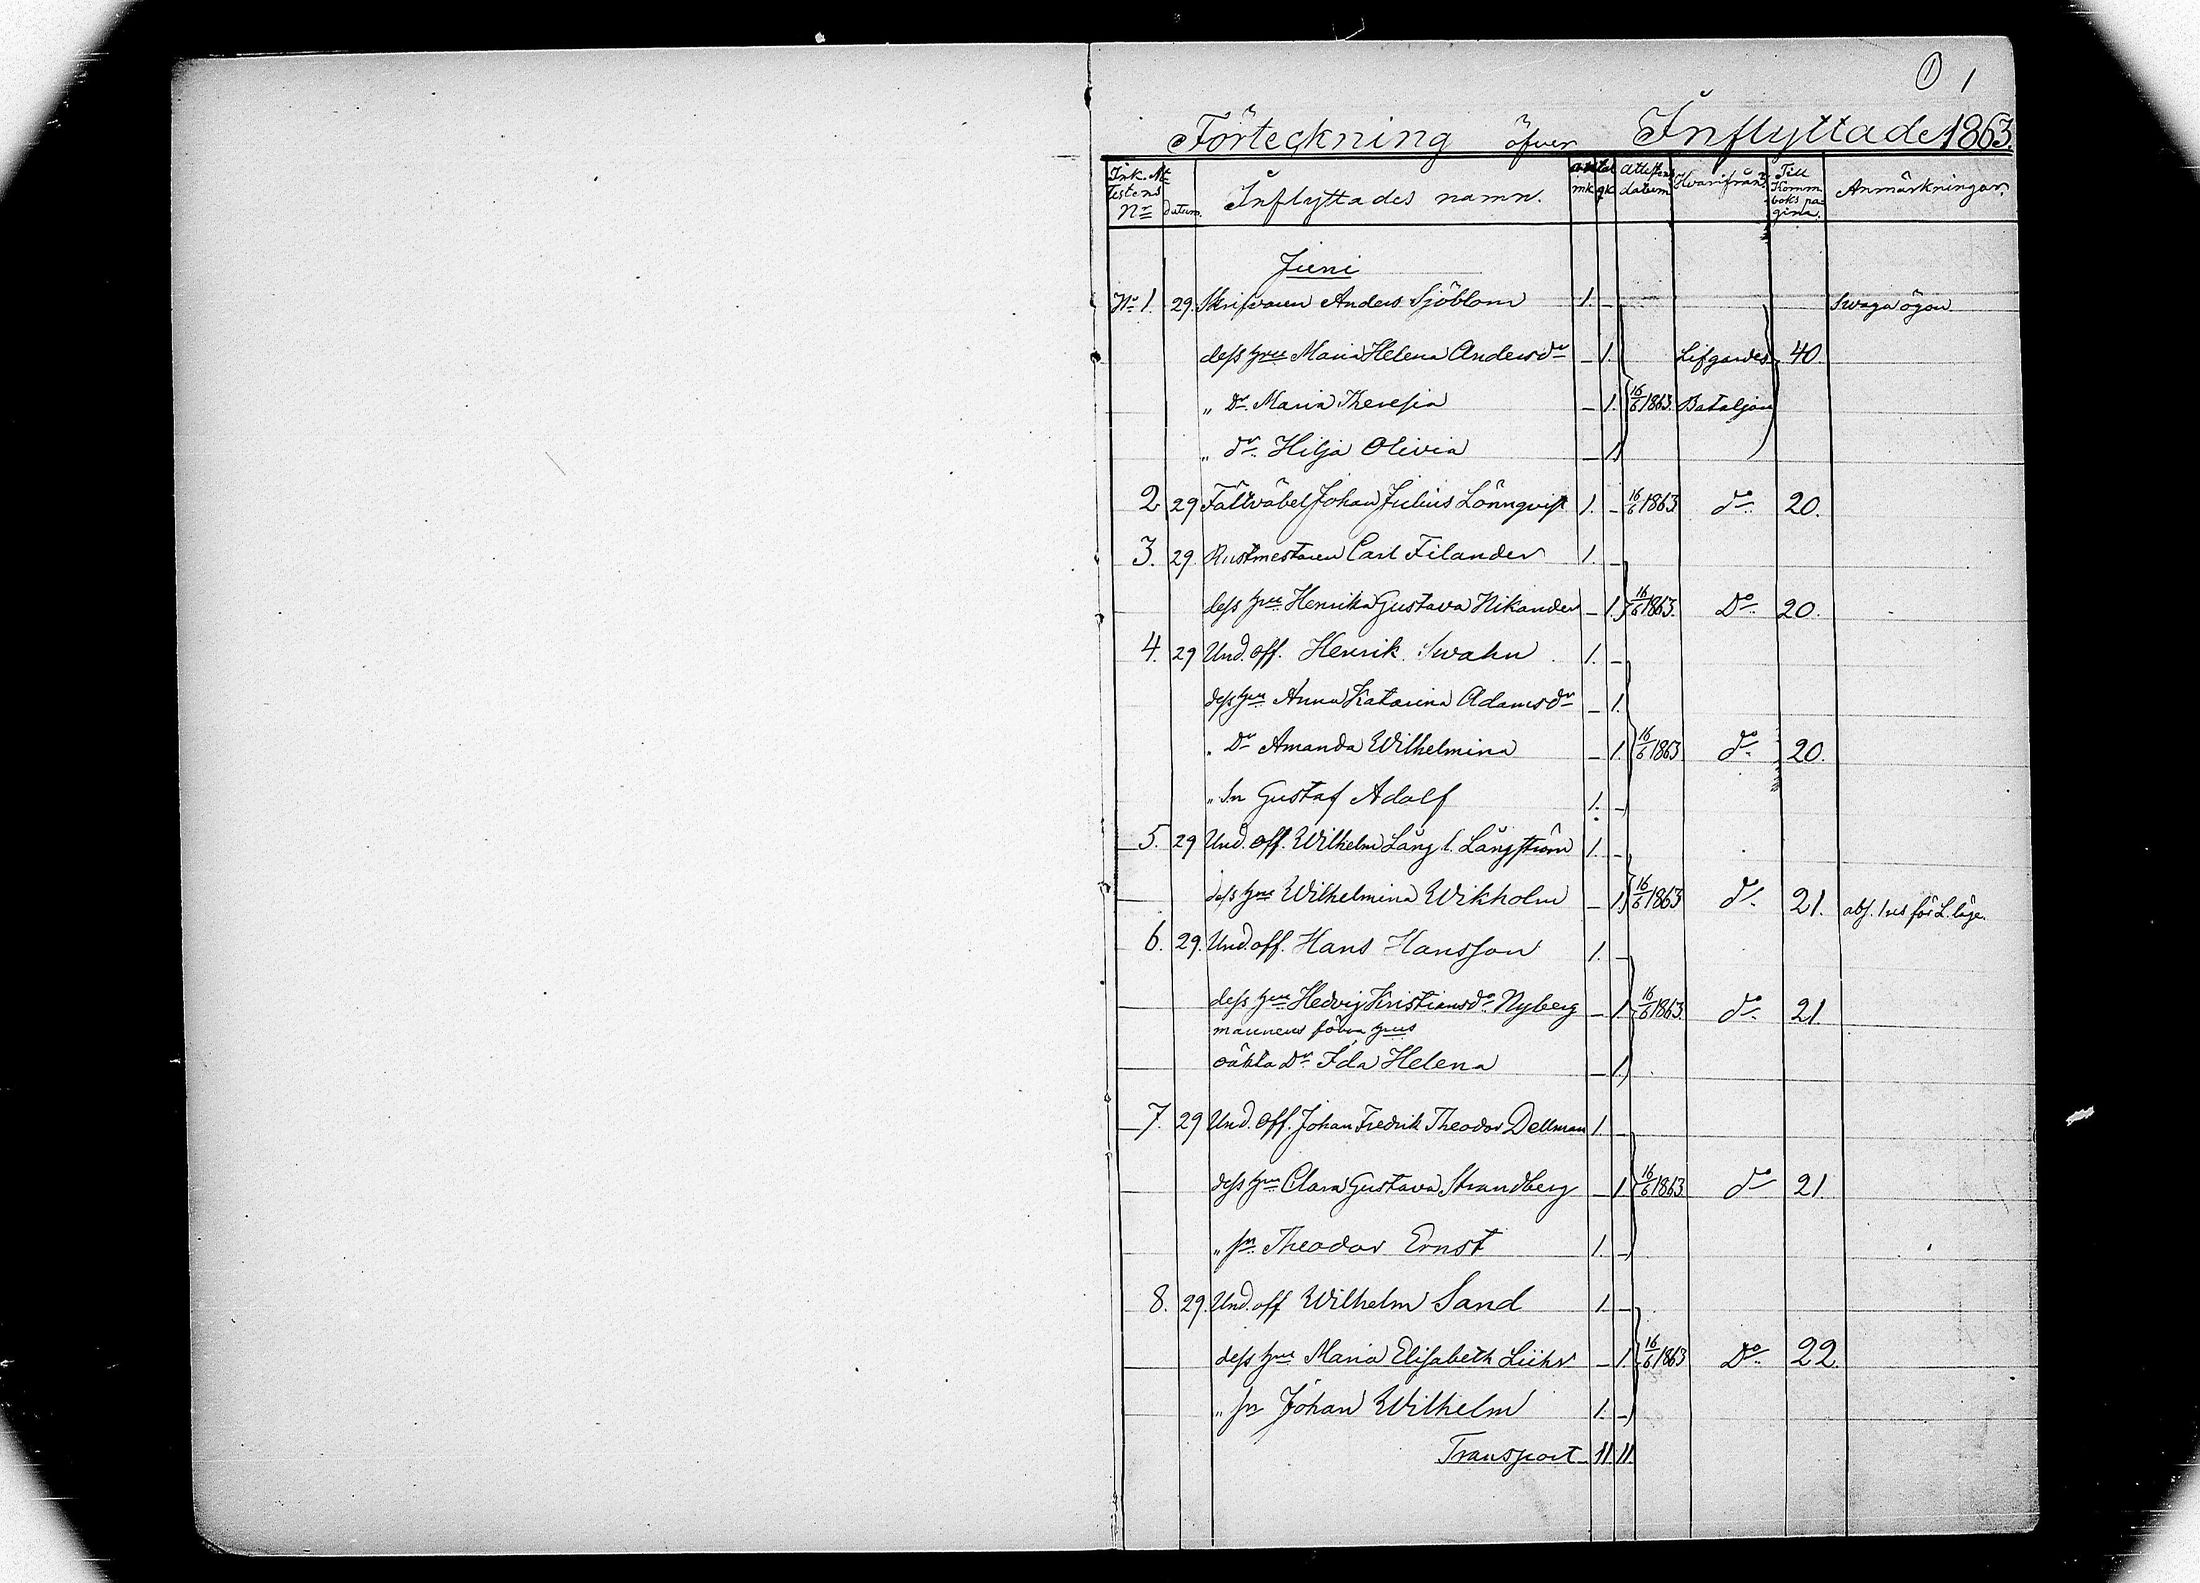 1 1
Förteckning öfver Inflyttade 1863.
Ink. At
testens
Nr datum. Inflyttades namn. antal mk qk Attestens datum Hvarifrån Till Komm. boks pagina. Anmärkningar.
Juni
No 1. 29. Skrifvaren Anders Sjöblom 1. – Swaga ögon
dess hru Maria Helena Andersdr – 1. Lifgardes 40.
„ Dr Maria Theresia – 1. 16/6 1863. Bataljon
„ dr Hilja Olivia – 1.
2 29 Fältväbel Johan Julius Lönnqvist 1. – 16/6 1863 do 20.
3. 29. Rustmestaren Carl Filander 1. –
dess hru Henrika Gustava Nikander – 1. 16/6 1863. Do 20.
4. 29 Und. off. Henrik Swahn 1. –
dess hru Anna Katarina Adamsdr – 1.
„ Dr Amanda Wilhelmina – 1. 16/6 1863 do 20.
„ Sn Gustaf Adolf 1. –
5. 29 Und. off. Wilhelm Lång l. Långström 1. –
dess hru Wilhelmina Wikholm – 1. 16/6 1863 do 21. abs. för L. läge.
6. 29. Und. off. Hans Hansson 1. –
dess hru Hedvig Kristiansdr Nyberg – 1. 16/6 1863. do 21.
mannens förra hrus
oäkta Dr Ida Helena – 1.
7. 29 Und. off. Johan Fredrik Theodor Dellman 1. –
dess hru Clara Gustava Strandberg – 1. 16/6 1863 do 21.
„ sn Theodor Ernst 1. –
8. 29. Und. off Wilhelm Sand 1. –
dess hru Maria Elisabeth Lühr – 1. 16/6 1863 Do 22.
„ sn Johan Wilhelm 1. –
Transport 11. 11.